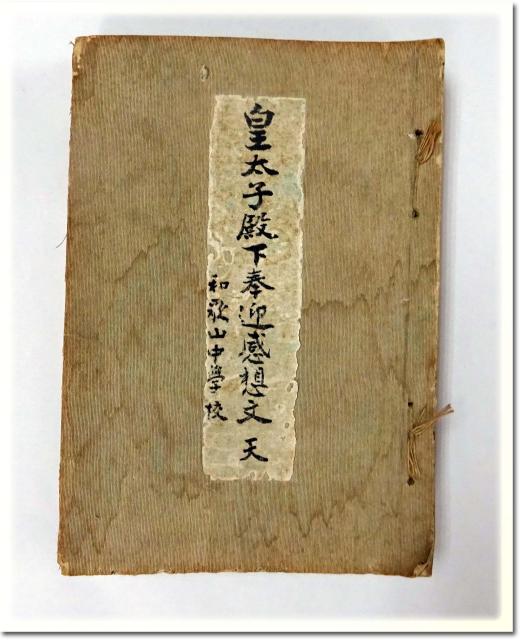 皇太子殿下奉迎感想文 天
和歌山中學校